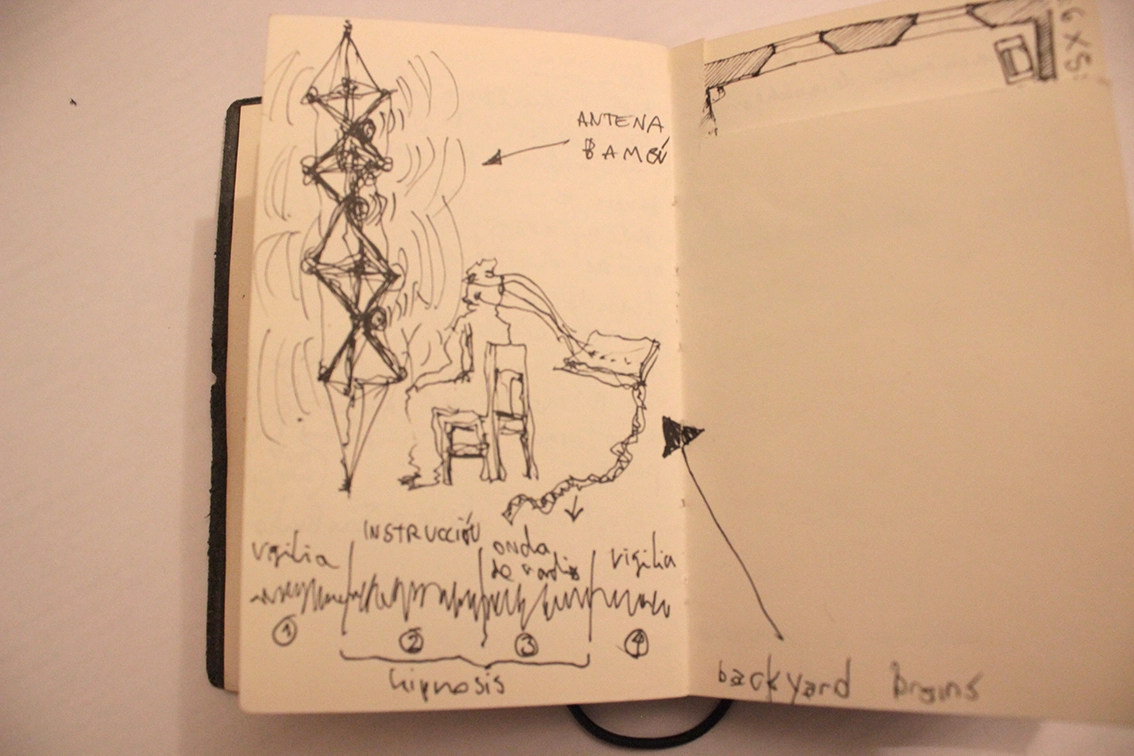 ANTENA
BAMBÚ
6X5
INSTRUCCIÓN
vigilia
onda
de radio
vigilia
1
2
3
4
hipnosis
backyard Brains